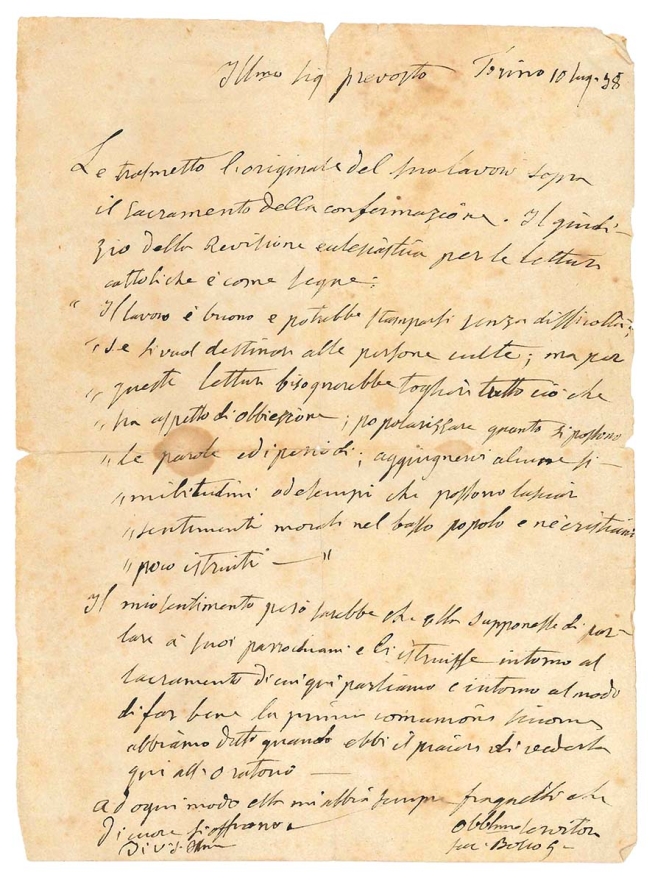 Illmo Sig prevosto Torino 10 lug. 58
Le trasmetto l'originale del suo lavoro sopra
il Sacramento della confermazione. Il giudi-
zio della Revisione eclesiastica per le letture
cattoliche è come segue:
" Il lavoro è buono e potrebbe stamparsi senza difficoltà;
" se si vuol destinare alle persone culte; ma per
" queste letture bisognerebbe togliere tutto ciò che
" ha aspetto di obbiezione; popolarizzare quanto si possono
" le parole ed i periodi; aggiugnervi alcune si-
" militudini od esempi che possono lasciar
" sentimenti morali nel basso popolo e ne' cristiani
" poco istruiti — "
Il mio sentimento però sarebbe che ella supponesse di par-
lare a' suoi parrochiani e li istruisse intorno al
sacramento di cui qui parliamo e intorno al modo
di far bene la prima comunione siccome
abbiamo detto quando ebbi il piacere di vederla
qui all'Oratorio —
Ad ogni modo ella mi abbia sempre fra quelli che
di cuore si offrono
Di V. S. Illma Obblmo servitore
Sac. Bosco G-